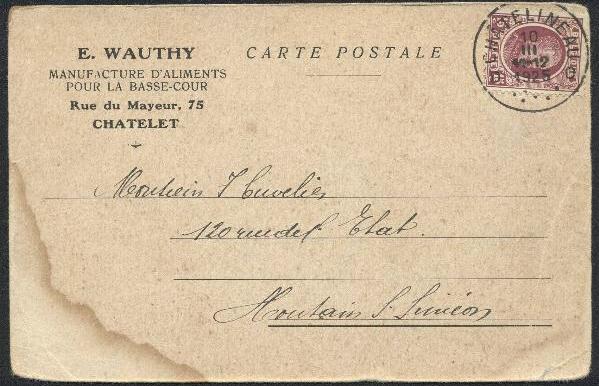 E. WAUTHY
MANUFACTURE D'ALIMENTS
POUR LA BASSE-COUR
Rue du Mayeur, 75
CHATELET
CARTE POSTALE
CHATELINEAU
10
III
1925
120 rue de l'Etat.
Houtain St. Siméon